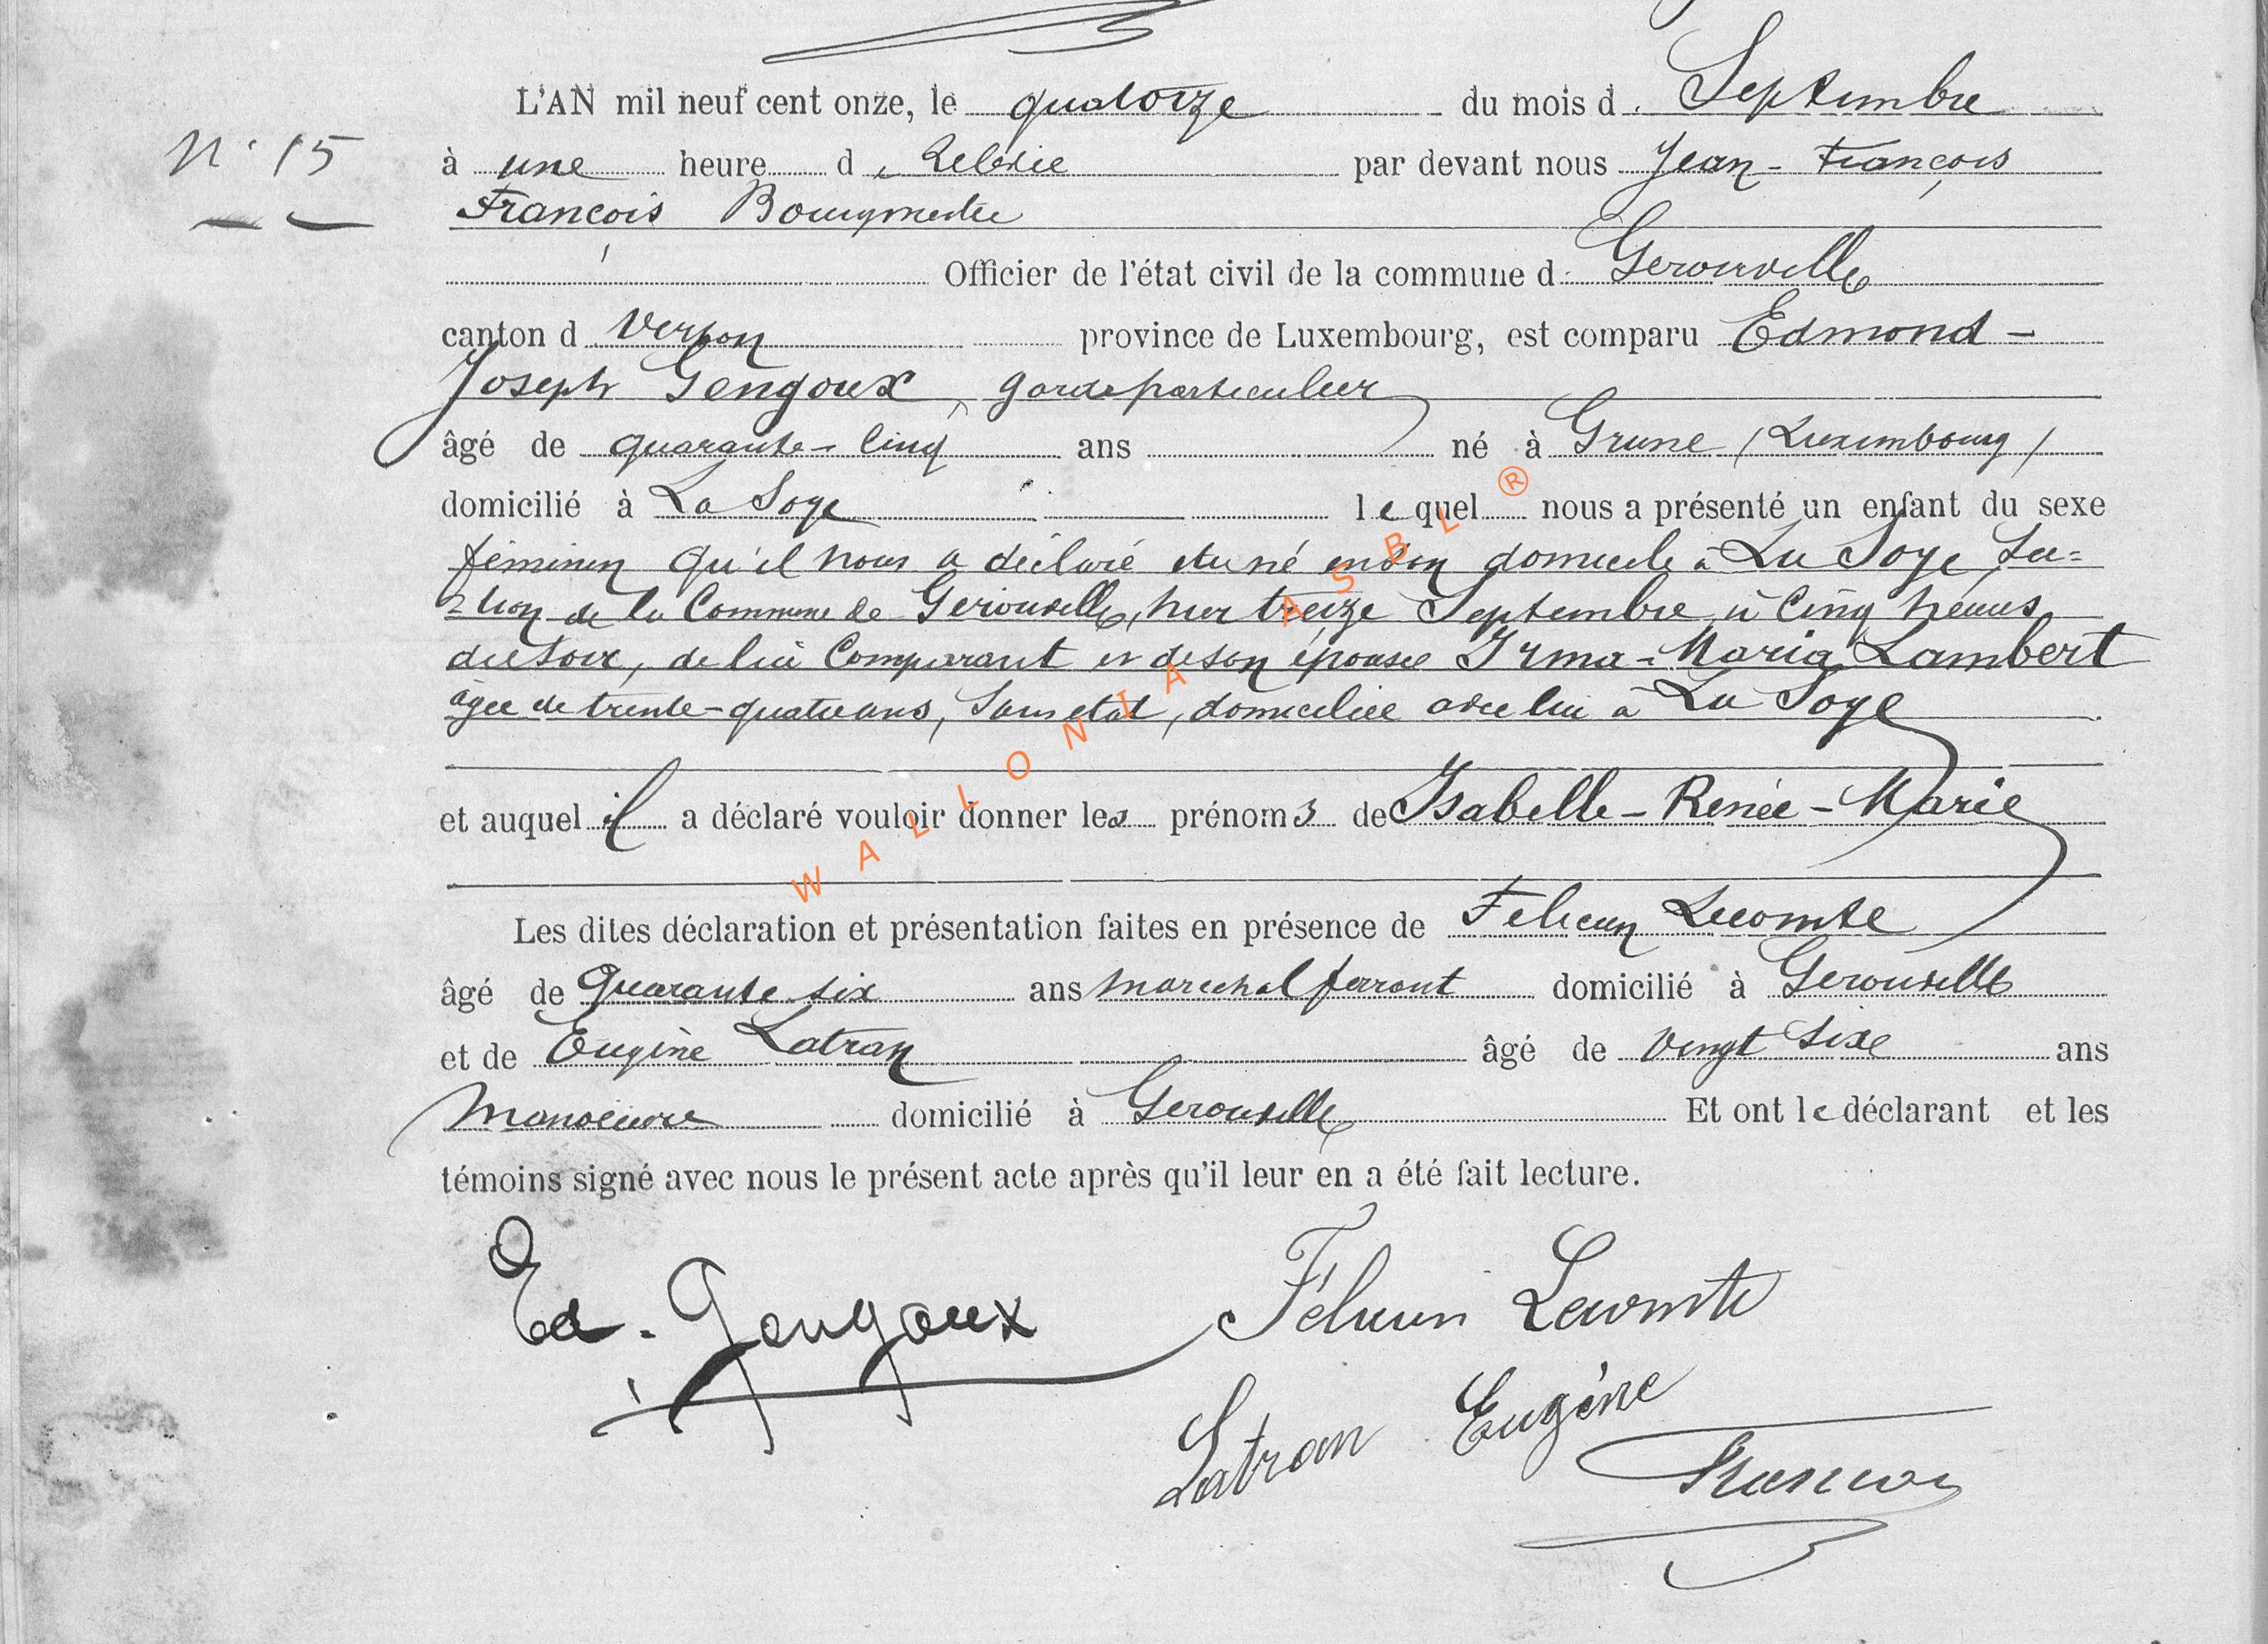 L'AN mil neuf cent onze, le quatorze du mois d. Septembre
N° 15
à une heure d e Relevée par devant nous Jean-François
François Bourgmestre
Officier de l'état civil de la commune d. Gerouville
canton d Virton province de Luxembourg, est comparu Edmond-
Joseph Gengoux, garde particulier
âgé de quarante-cinq ans né à Grune (Luxembourg)
domicilié à La Soye lequel nous a présenté un enfant du sexe
féminin qu'il nous a déclaré être né en son domicile à La Soye sec=
=tion de la Commune de Gerouville, hier treize Septembre à cinq heures
du soir, de lui Comparant et de son épouse Irma-Maria Lambert
agée de trente-quatre ans, sans état, domiciliée avec lui à La Soye
et auquel il a déclaré vouloir donner les prénoms de Isabelle-Renée-Marie
Les dites déclaration et présentation faites en présence de Felicien Lecomte
âgé de Quarante six ans marechal ferrant domicilié à Gerouville
et de Eugène Latran âgé de vingt six ans
Manoeuvre domicilié à Gerouville Et ont le déclarant et les
témoins signé avec nous le présent acte après qu'il leur en a été fait lecture.
Ed. Gengoux Félicien Lecomte
Latran Eugène
François
WALLONIA ASBL ®